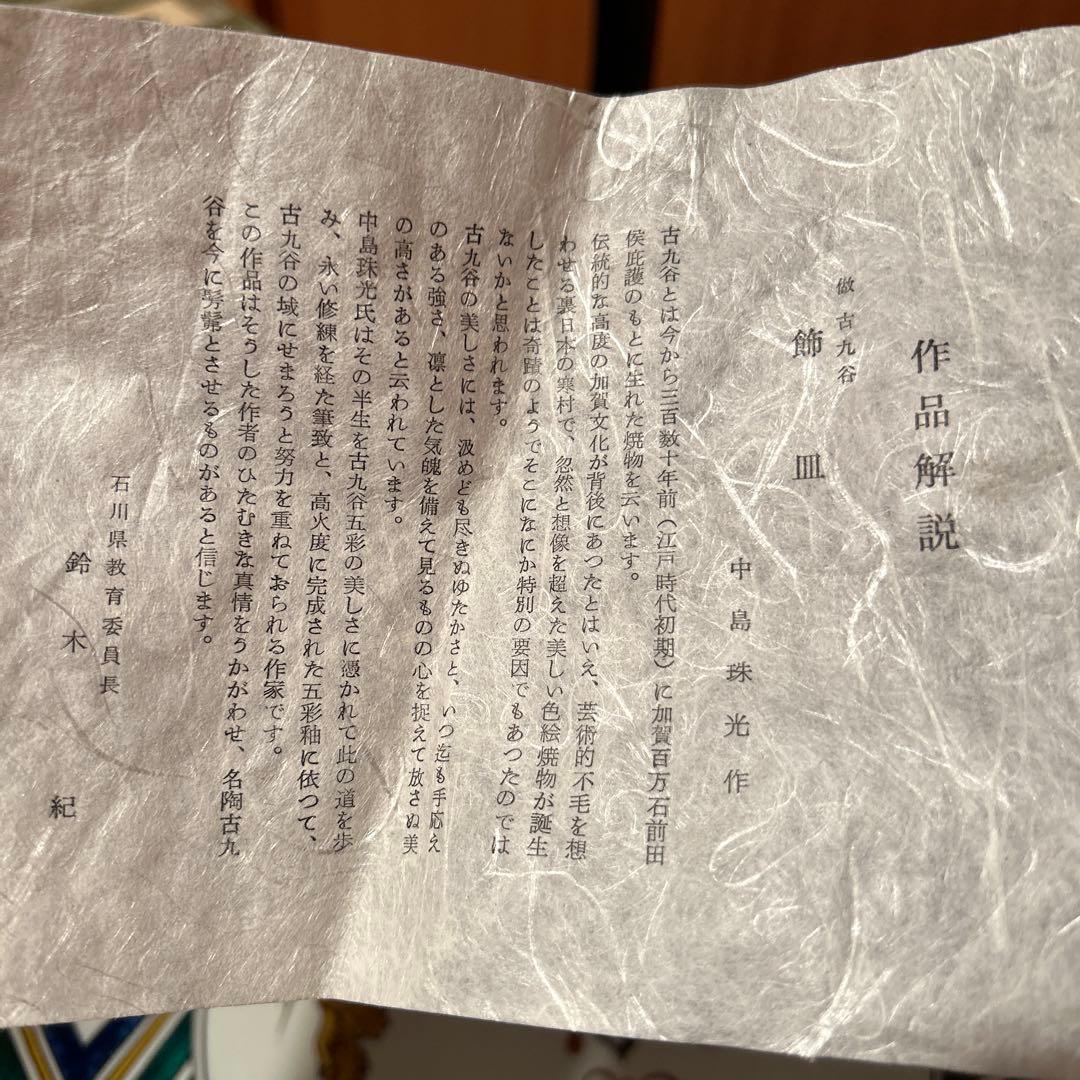 作品解説
倣古九谷
飾皿
中島珠光作
古九谷とは今から三百数十年前(江戸時代初期)に加賀百万石前田
侯庇護のもとに生れた焼物を云います。
伝統的な高度の加賀文化が背後にあつたとはいえ、芸術的不毛を想
わせる裏日本の寒村で、忽然と想像を超えた美しい色絵焼物が誕生
したことは奇蹟のようでそこになにか特別の要因でもあつたのでは
ないかと思われます。
古九谷の美しさには、汲めども尽きぬゆたかさと、いつ迄も手応え
のある強さ、凛とした気魄を備えて見るものの心を捉えて放さぬ美
の高さがあると云われています。
中島珠光氏はその半生を古九谷五彩の美しさに憑かれて此の道を歩
み、永い修練を経た筆致と、高火度に完成された五彩釉に依つて、
古九谷の域にせまろうと努力を重ねておられる作家です。
この作品はそうした作者のひたむきな真情をうかがわせ、名陶古九
谷を今に髣髴とさせるものがあると信じます。
石川県教育委員長
鈴木紀